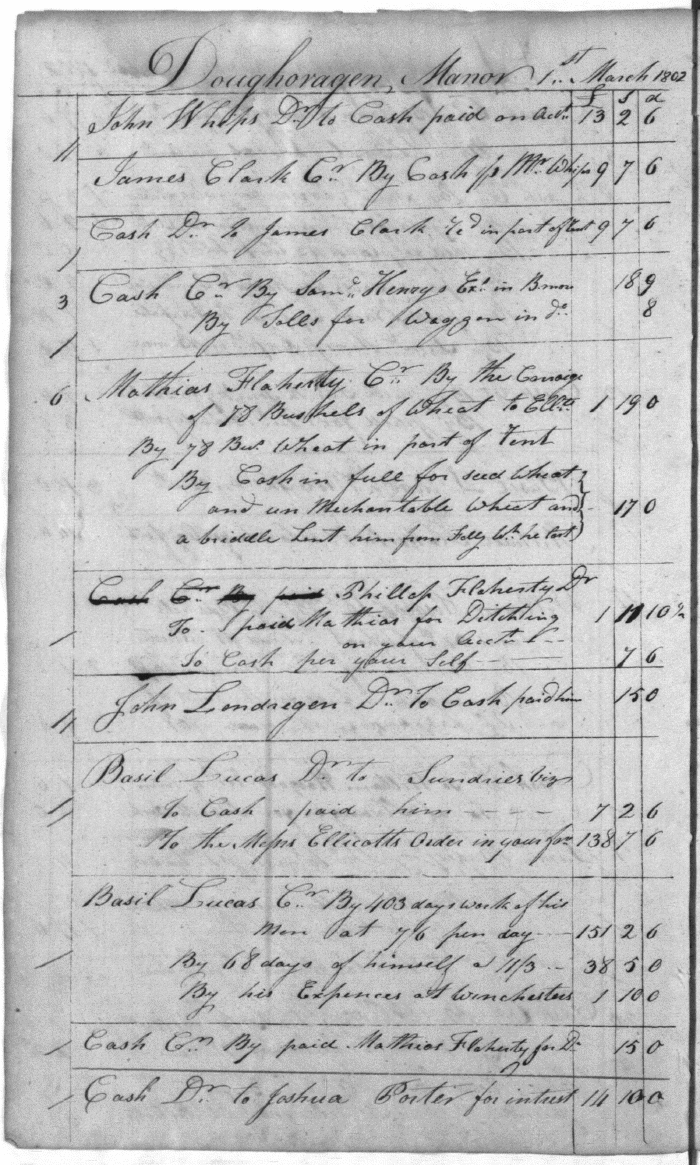 Doughoragen Manor 1st March 1802
£ s d
John Whips Dr to Cash paid on Acct 13 2 6
James Clark Cr By Cash pr Mr Whips 9 7 6
Cash Dr to James Clark in part of Rent 9 7 6
3 Cash Cr By Saml Henrys Exs in Bmore 18 9
By Tolls for Waggon in do 8
6 Mathias Flaherty Cr By the Carriage
of 78 Bushels of Wheat to 1 19 0
By 78 Bus Wheat in part of Rent
By Cash in full for seed Wheat
and un Mechantable Wheat and 17 0
a briddle Lent him from Folly Wh he lost
Cash Cr By paid Phillip Flaherty Dr
To paid Mathias for Ditching 1 11 10½
on your Acct
To Cash per your Self 7 6
John Londregen Dr To Cash paid him 15 0
Basil Lucas Dr to Sundries Viz
To Cash paid him 7 2 6
To the Messrs Ellicotts Order in your 138 7 6
Basil Lucas Cr By 403 days work of his
Men at 7/6 per day 151 2 6
By 68 days of himself a 11/3 38 5 0
By his Expences at Winchesters 1 10 0
Cash Cr By paid Mathias Flaherty for Do 15 0
Cash Dr to Joshua Porter for intrest 14 10 0